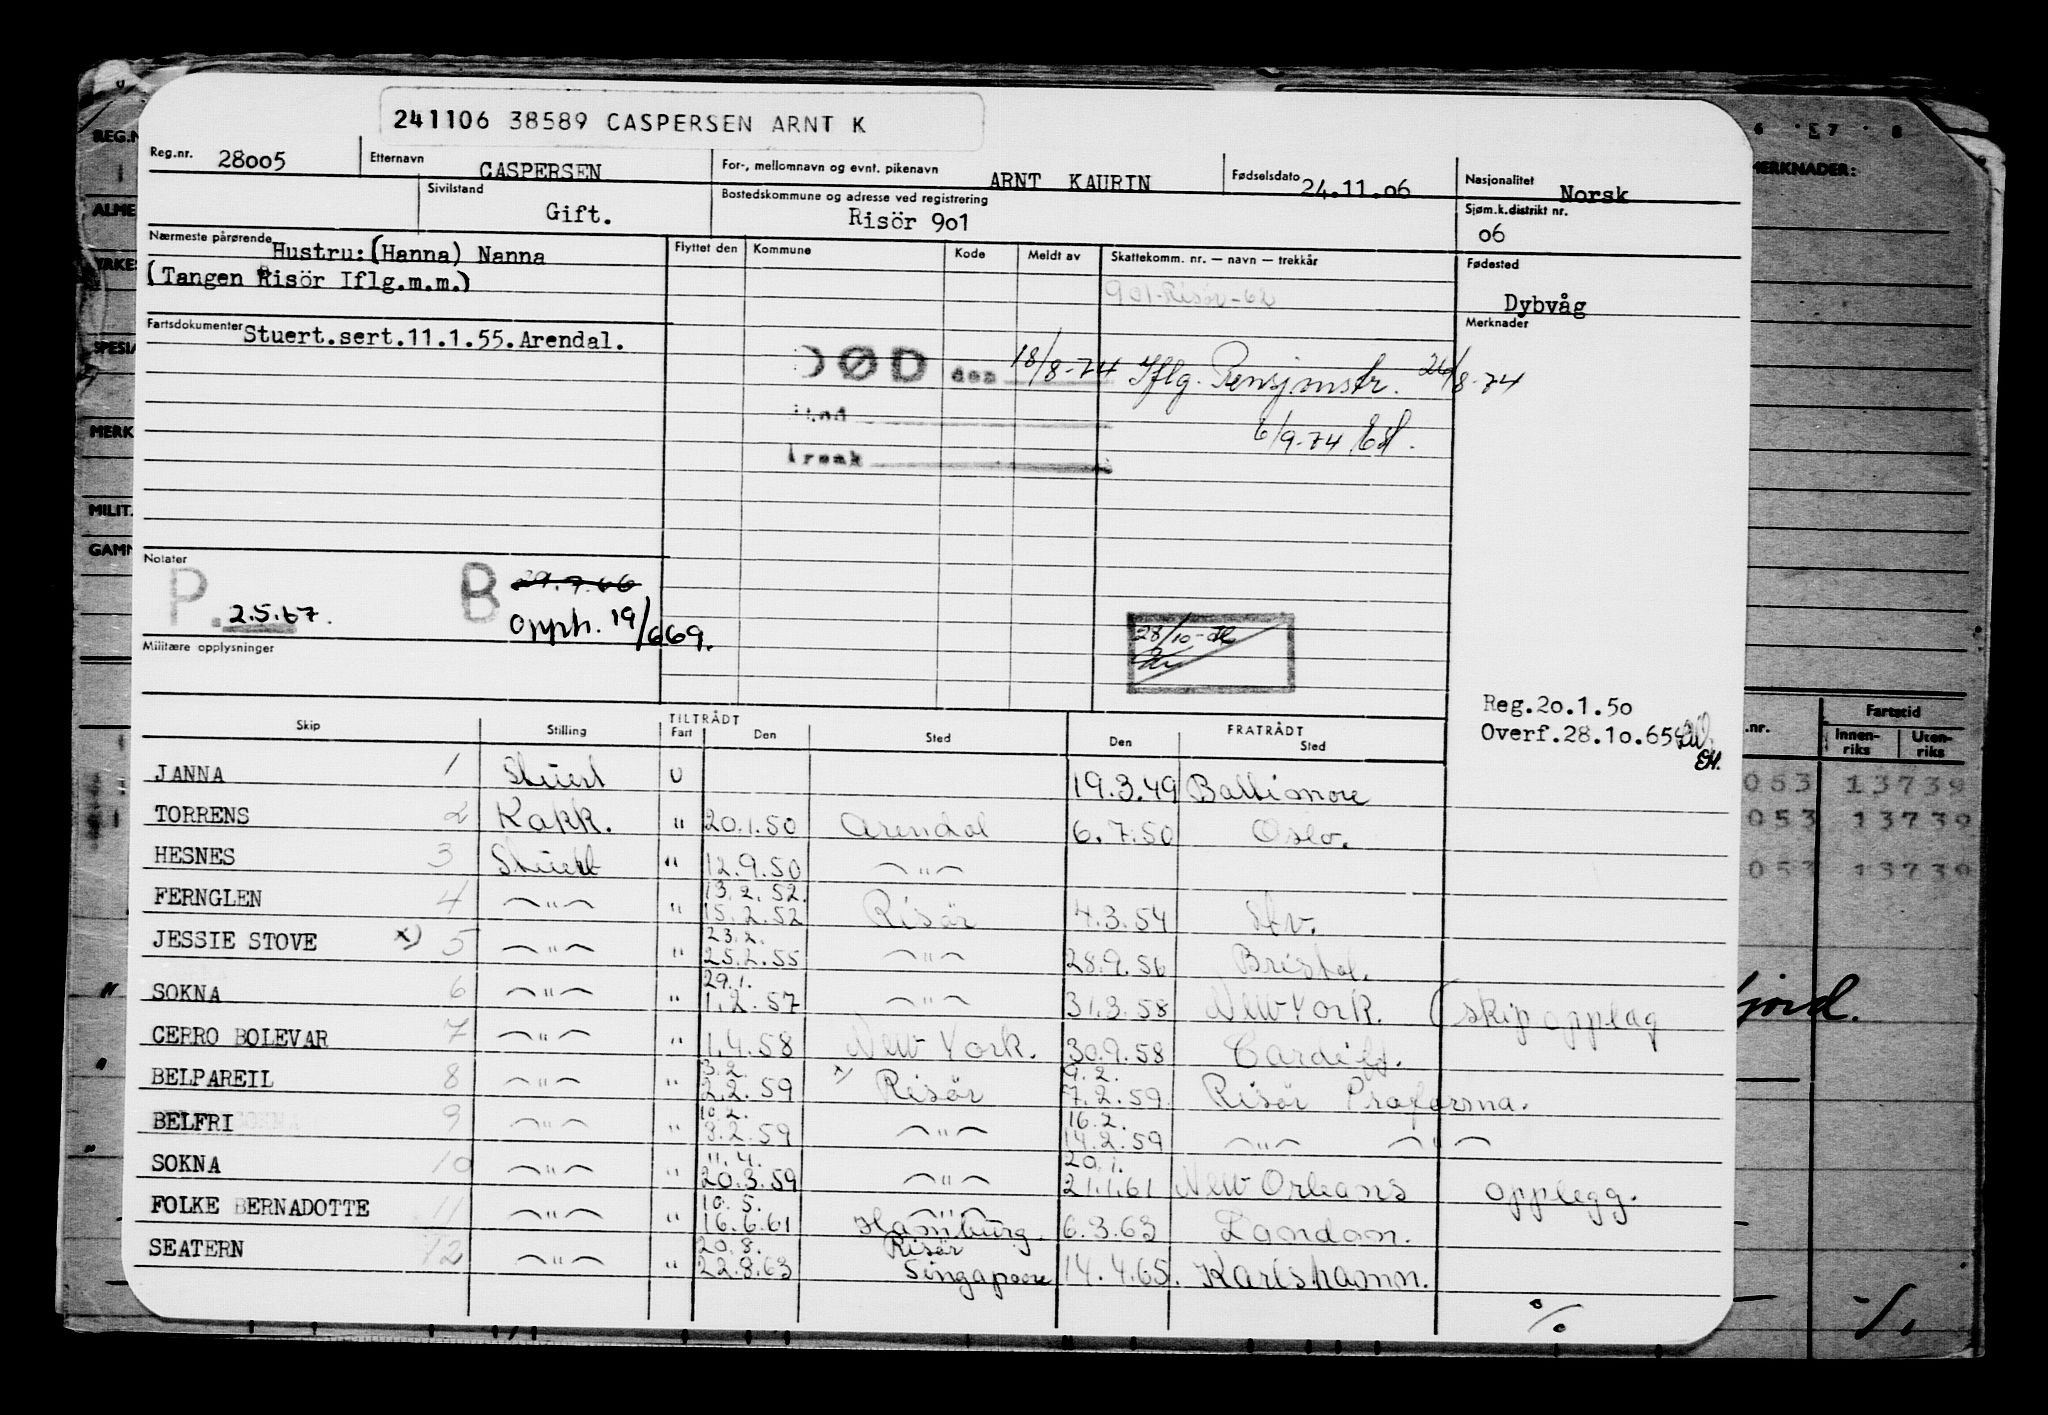 241106 38589 CASPERSEN ARNT K
Reg.nr. 28005 Etternavn CASPERSEN For-, mellomnavn og evnt. pikenavn ARNT KAURIN Fødselsdato 24.11.06 Nasjonalitet Norsk
Sivilstand Gift. Bostedskommune og adresse ved registrering Risör 901 Sjøm.k.distrikt nr. 06
Nærmeste pårørende Hustru: (Hanna) Nanna Flyttet den Kommune Kode Meldt av Skattekomm. nr. — navn — trekkår Fødested
(Tangen Risör Iflg.m.m.) 901-Risör-62 Dybvåg
Fartsdokumenter Stuert.sert.11.1.55.Arendal. Merknader
DØD den 18/8-74 Iflg. Pensjonstr. 26/8-74
Sted 6/9-74
Årsak
Notater
P. 2.5.67. B 29.7.66
Opph. 19/6 69.
28/10-
Militære opplysninger
Reg.20.1.50
Overf.28.10.65 EH.
Skip Stilling TILTRÅDT Fart Den Sted FRATRÅDT Den Sted
JANNA 1 Stuert U 19.3.49 Baltimore
TORRENS 2 Kokk. " 20.1.50 Arendal 6.7.50 Oslo.
HESNES 3 Stuert " 12.9.50 —"—
FERNGLEN 4 —"— " 13.2.52. 15.2.52 Risör 4.3.54 Stv.
JESSIE STOVE x) 5 —"— " 23.2. 25.2.55 —"— 28.9.56 Bristol.
SOKNA 6 —"— " 29.1. 1.2.57 —"— 31.3.58 New York. (skip opplag
CERRO BOLEVAR 7 —"— " 1.4.58 New York. 30.9.58 Cardiff.
BELPAREIL 8 —"— " 3.2. 2.2.59 x) Risör 9.2. 7.2.59. Risör Proforma.
BELFRI 9 —"— " 10.2. 8.2.59 —"— 16.2. 14.2.59 —"— —"—
SOKNA 10 —"— " 11.4. 20.3.59 —"— 20.1. 21.1.61 New Orleans opplegg.
FOLKE BERNADOTTE 11 —"— " 10.5. 16.6.61 —"— Hamburg. 6.3.63 London.
SEATERN 12 —"— " 20.8. 22.8.63 Risör Singapore 14.4.65. Karlshamn.
%
REG.N
ALME
YRKES
SPESIA
MERK
MILIT.
GAMM
6 7 8
MERKNADER:
.nr. Fartstid
Innenriks Utenriks
053 13739
053 13739
053 13739
jord.